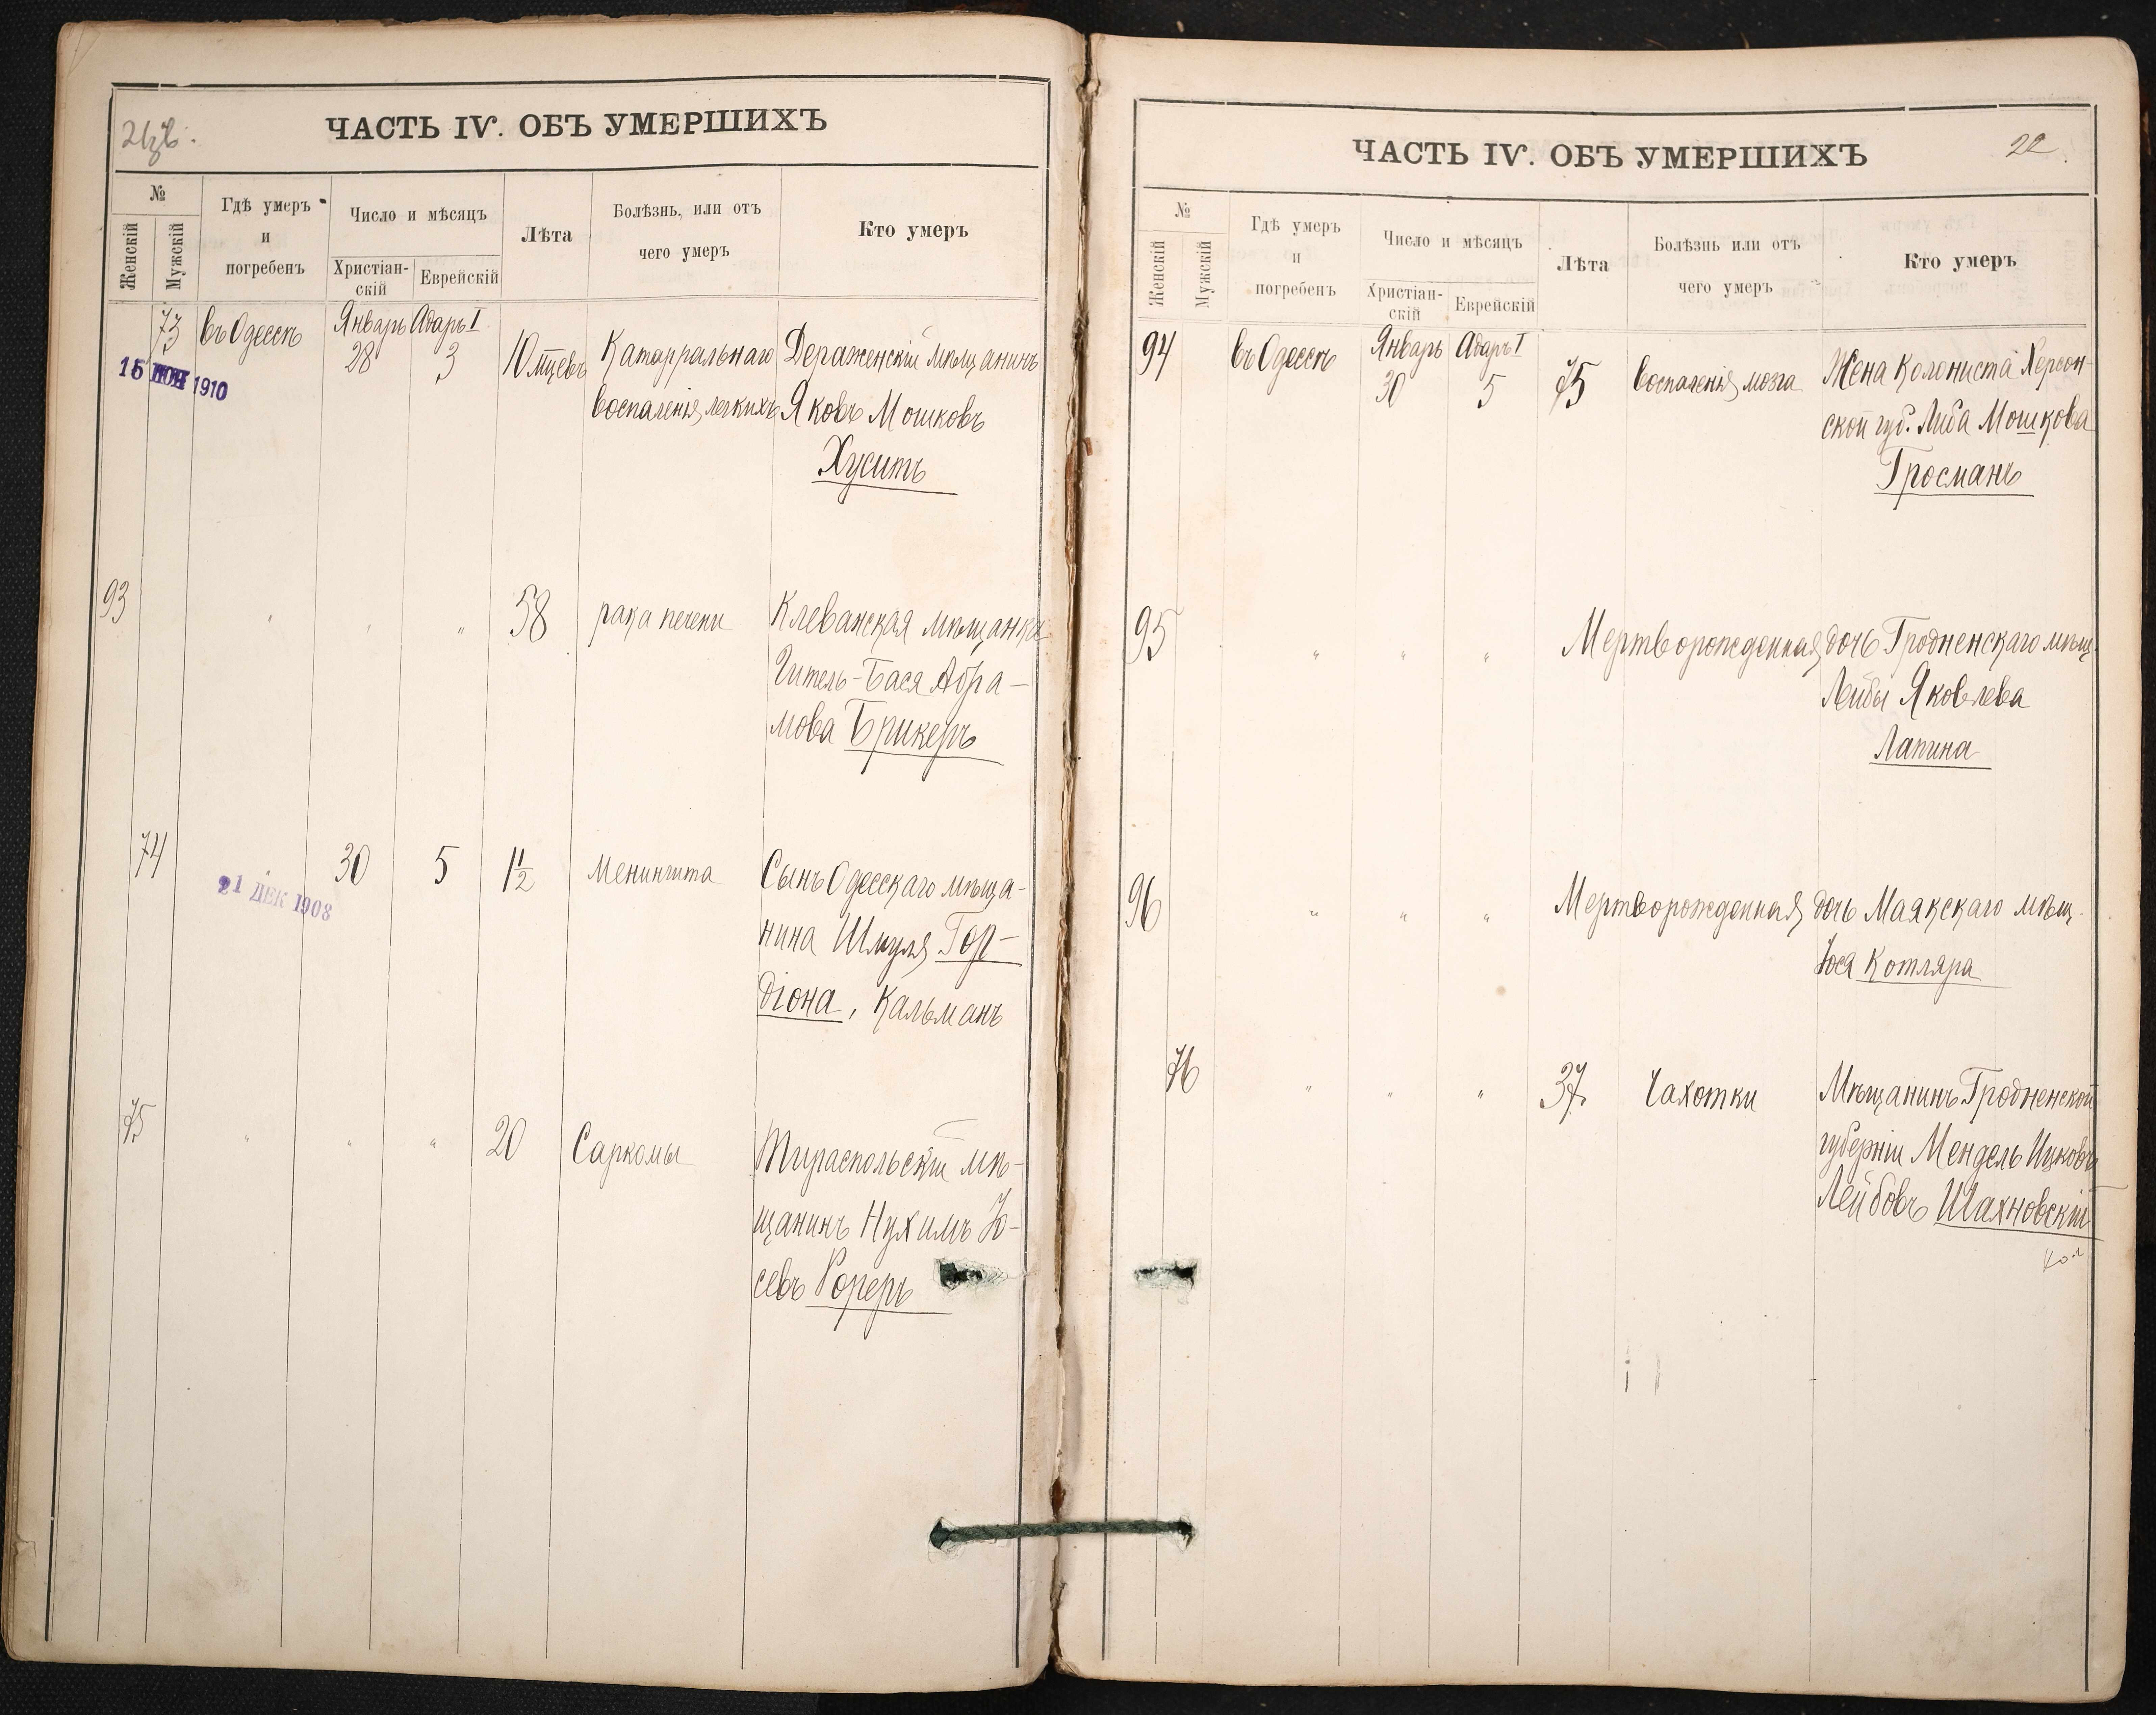 21об.
ЧАСТЬ IV. ОБЪ УМЕРШИХЪ
№
Женскій
Мужскій
Гдѣ умеръ
и
погребенъ
Число и мѣсяцъ
Христіан-
скій
Еврейскій
Лѣта
Болѣзнь, или отъ
чего умеръ
Кто умеръ
73
въ Одессѣ
Январь
28
Адаръ I
3
10 мцевъ
Катарральнаго
воспаленія легкихъ
Дераженскій мѣщанинъ
Яковъ Мошковъ
Хуситъ
15 1910
93
" " "
58
рака печени
Клеванская мѣщанка
Гитель-Бася Абра-
мова Брикеръ
74
"
30
5
1½
Менингита
Сынъ Одесскаго мѣща-
нина Шмуля Гор-
діона, Кальманъ
21 ДЕК 1908
75
" " "
20
Саркомы
Тираспольскій мѣ-
щанинъ Нухимъ Іо-
севъ Рореръ
22.
ЧАСТЬ IV. ОБЪ УМЕРШИХЪ
№
Женскій
Мужскій
Гдѣ умеръ
и
погребенъ
Число и мѣсяцъ
Христіан-
скій
Еврейскій
Лѣта
Болѣзнь или отъ
чего умеръ
Кто умеръ
94
въ Одессѣ
Январь
30
Адаръ I
5
75
Воспаленія мозга
Жена колониста Херсон-
ской губ. Либа Мошкова
Гросманъ
95
" " "
Мертворожденная дочь Гродненскаго мѣщ.
Лейбы Яковлева
Лапина
96
" " "
Мертворожденная дочь Маякскаго мѣщ.
Іося Котляра
76
" " "
37
Чахотки
Мѣщанинъ Гродненской
губерніи Мендель Ицковъ
Лейбовъ Шахновскій